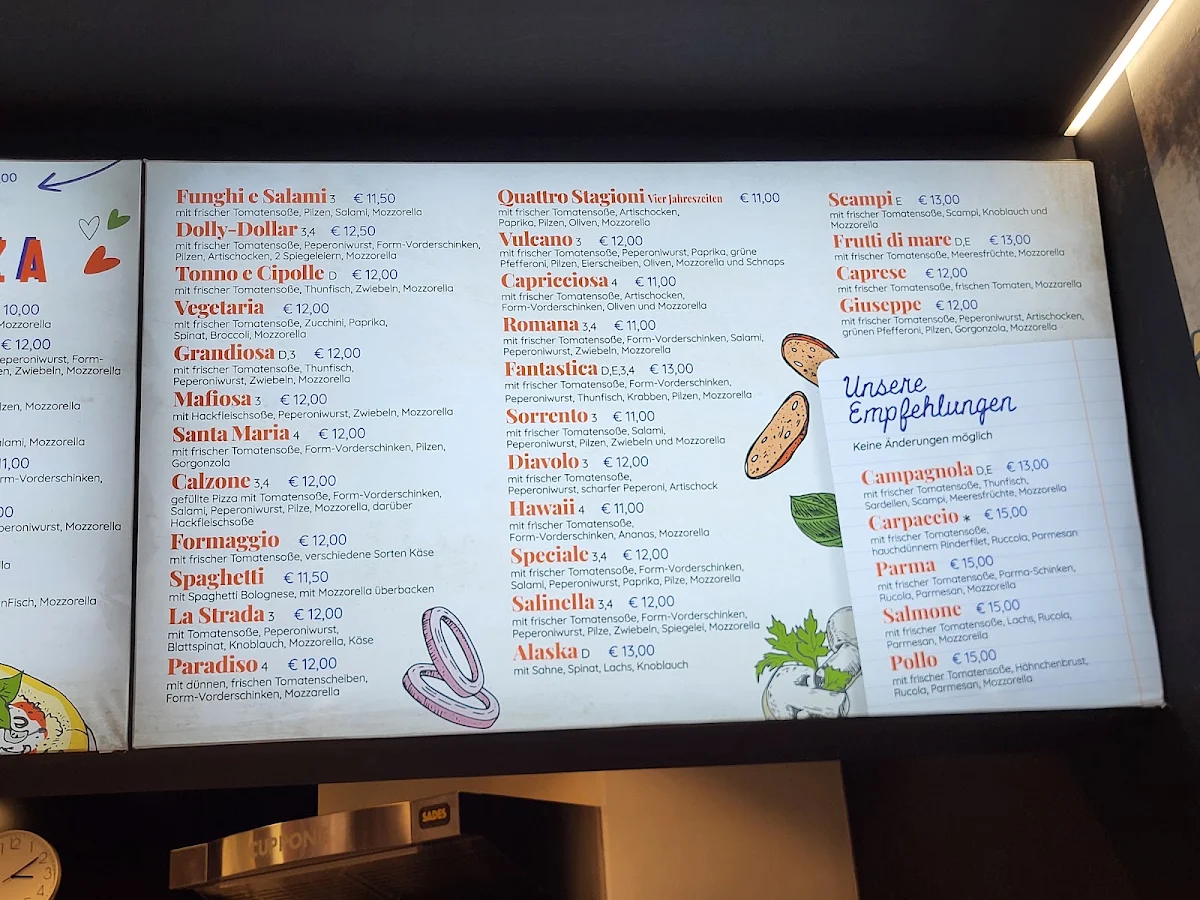 ,00
ZA
10,00
Mozzorella
€ 12,00
eperoniwurst, Form-
en, Zwiebeln, Mozzorella
lzen, Mozzarella
alami, Mozzorella
11,00
rm-Vorderschinken,
00
peroniwurst, Mozzorella
lla
nFisch, Mozzorella
Funghi e Salami 3 € 11,50
mit frischer Tomatensoße, Pilzen, Salami, Mozzorella
Dolly-Dollar 3,4 € 12,50
mit frischer Tomatensoße, Peperoniwurst, Form-Vorderschinken,
Pilzen, Artischocken, 2 Spiegeleiern, Mozzorella
Tonno e Cipolle D € 12,00
mit frischer Tomatensoße, Thunfisch, Zwiebeln, Mozzorella
Vegetaria € 12,00
mit frischer Tomatensoße, Zucchini, Paprika,
Spinat, Broccoli, Mozzorella
Grandiosa D,3 € 12,00
mit frischer Tomatensoße, Thunfisch,
Peperoniwurst, Zwiebeln, Mozzorella
Mafiosa 3 € 12,00
mit Hackfleischsoße, Peperoniwurst, Zwiebeln, Mozzorella
Santa Maria 4 € 12,00
mit frischer Tomatensoße, Form-Vorderschinken, Pilzen,
Gorgonzola
Calzone 3,4 € 12,00
gefüllte Pizza mit Tomatensoße, Form-Vorderschinken,
Salami, Peperoniwurst, Pilze, Mozzorella, darüber
Hackfleischsoße
Formaggio € 12,00
mit frischer Tomatensoße, verschiedene Sorten Käse
Spaghetti € 11,50
mit Spaghetti Bolognese, mit Mozzorella überbacken
La Strada 3 € 12,00
mit Tomatensoße, Peperoniwurst,
Blattspinat, Knoblauch, Mozzorella, Käse
Paradiso 4 € 12,00
mit dünnen, frischen Tomatenscheiben,
Form-Vorderschinken, Mozzarella
Quattro Stagioni Vier Jahreszeiten € 11,00
mit frischer Tomatensoße, Artischocken,
Paprika, Pilzen, Oliven, Mozzorella
Vulcano 3 € 12,00
mit frischer Tomatensoße, Peperoniwurst, Paprika, grüne
Pfefferoni, Pilzen, Eierscheiben, Oliven, Mozzorella und Schnaps
Capricciosa 4 € 11,00
mit frischer Tomatensoße, Artischocken,
Form-Vorderschinken, Oliven und Mozzorella
Romana 3,4 € 11,00
mit frischer Tomatensoße, Form-Vorderschinken, Salami,
Peperoniwurst, Zwiebeln, Mozzorella
Fantastica D,E,3,4 € 13,00
mit frischer Tomatensoße, Form-Vorderschinken,
Peperoniwurst, Thunfisch, Krabben, Pilzen, Mozzorella
Sorrento 3 € 11,00
mit frischer Tomatensoße, Salami,
Peperoniwurst, Pilzen, Zwiebeln und Mozzorella
Diavolo 3 € 12,00
mit frischer Tomatensoße,
Peperoniwurst, scharfer Peperoni, Artischock
Hawaii 4 € 11,00
mit frischer Tomatensoße,
Form-Vorderschinken, Ananas, Mozzorella
Speciale 3,4 € 12,00
mit frischer Tomatensoße, Form-Vorderschinken,
Salami, Peperoniwurst, Paprika, Pilze, Mozzorella
Salinella 3,4 € 12,00
mit frischer Tomatensoße, Form-Vorderschinken,
Peperoniwurst, Pilze, Zwiebeln, Spiegelei, Mozzorella
Alaska D € 13,00
mit Sahne, Spinat, Lachs, Knoblauch
Scampi E € 13,00
mit frischer Tomatensoße, Scampi, Knoblauch und
Mozzorella
Frutti di mare D,E € 13,00
mit frischer Tomatensoße, Meeresfrüchte, Mozzorella
Caprese € 12,00
mit frischer Tomatensoße, frischen Tomaten, Mozzarella
Giuseppe € 12,00
mit frischer Tomatensoße, Peperoniwurst, Artischocken,
grünen Pfefferoni, Pilzen, Gorgonzola, Mozzorella
Unsere
Empfehlungen
Keine Änderungen möglich
Campagnola D,E € 13,00
mit frischer Tomatensoße, Thunfisch,
Sardellen, Scampi, Meeresfrüchte, Mozzorella
Carpaccio * € 15,00
mit frischer Tomatensoße,
hauchdünnem Rinderfilet, Ruccola, Parmesan
Parma € 15,00
mit frischer Tomatensoße, Parma-Schinken,
Rucola, Parmesan, Mozzorella
Salmone € 15,00
mit frischer Tomatensoße, Lachs, Rucola,
Parmesan, Mozzorella
Pollo € 15,00
mit frischer Tomatensoße, Hähnchenbrust,
Rucola, Parmesan, Mozzorella
CUPPONE
SADES
12 1 2 3 4